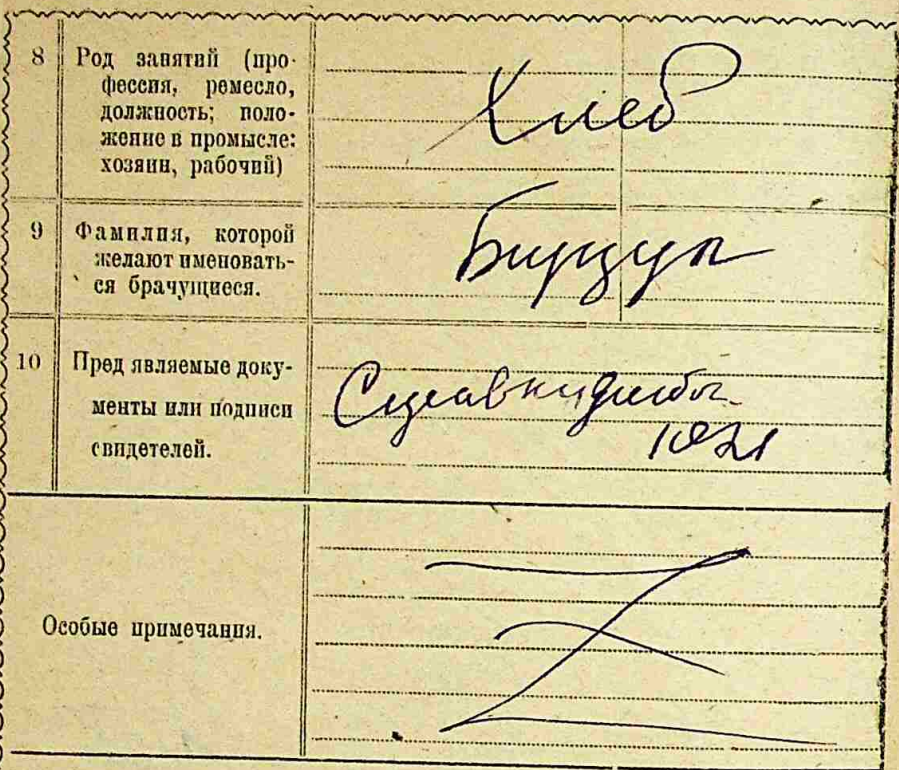 8 Род занятий (про-
фессия, ремесло,
должность; поло-
жение в промысле:
хозяин, рабочий)
Хлеб
9 Фамилия, которой
желают именовать-
ся брачущиеся.
10 Пред являемые доку-
менты или подписи
свидетелей.
Справки
Особые примечания.